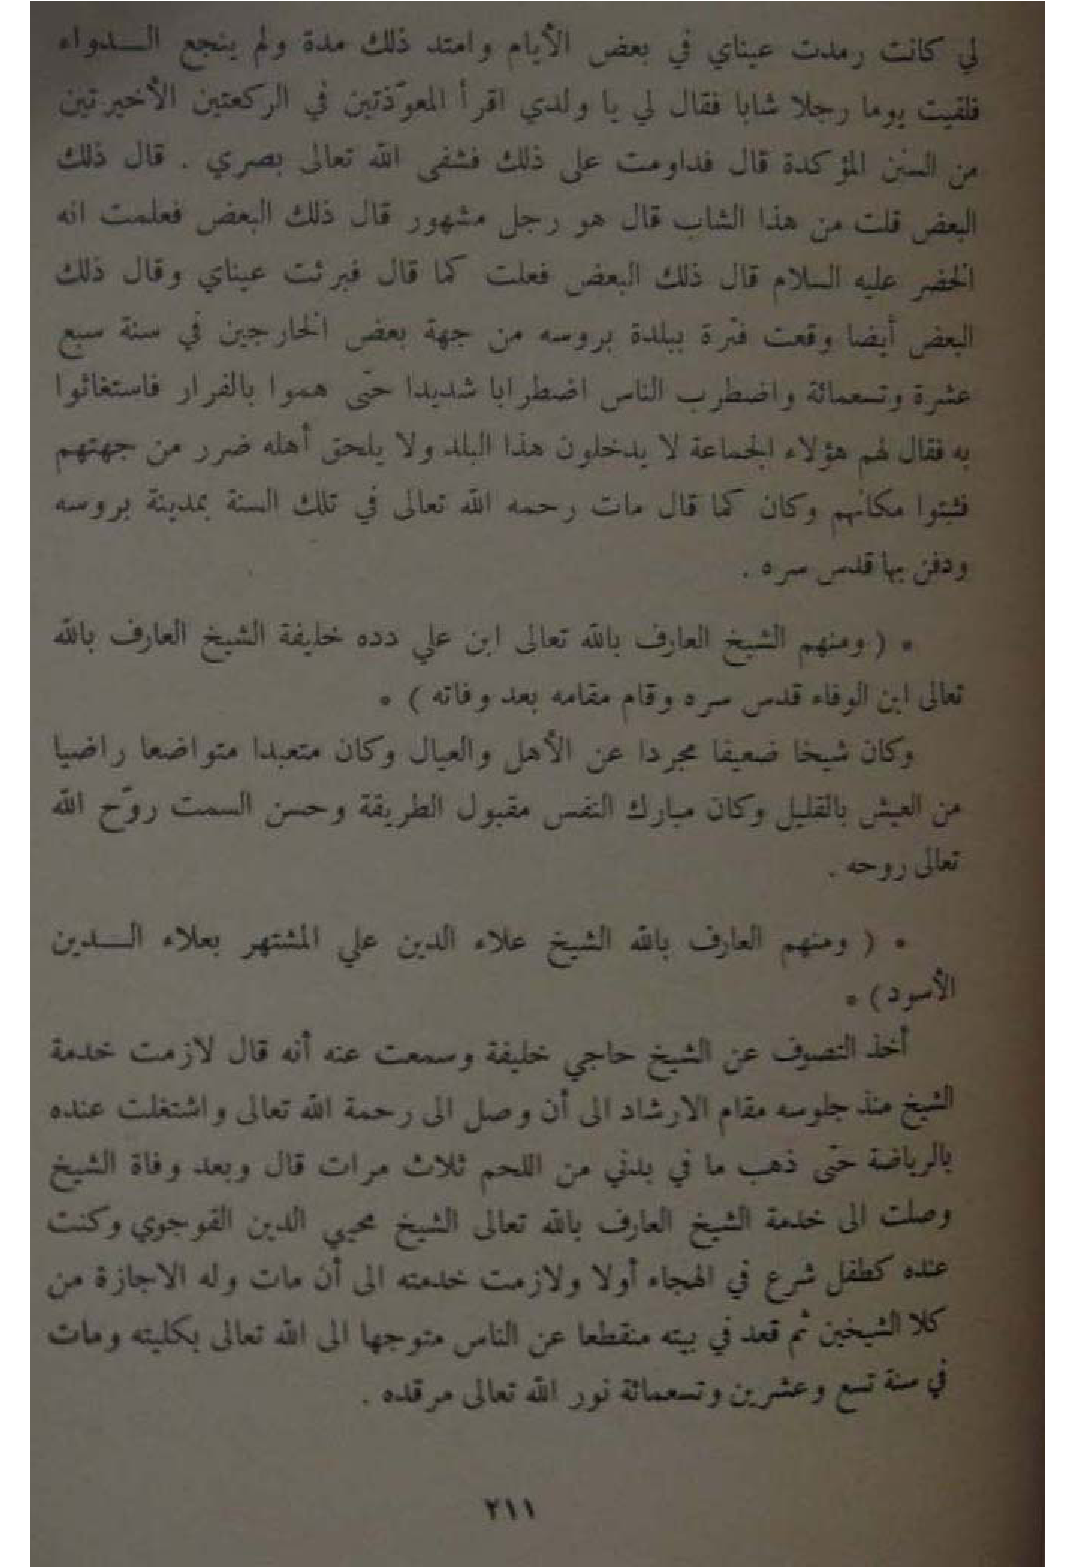 لي كانت رمدت عيناي في بعض الأيام وامتد ذلك مدة ولم ينجع الـــدواء
فلقيت يوما رجلا شابا فقال لي يا ولدي اقرأ المعوّذتين في الركعتين الأخيرتين
من السنن المؤكدة قال فداومت على ذلك فشفى الله تعالى بصري . قال ذلك
البعض قلت من هذا الشاب قال هو رجل مشهور قال ذلك البعض فعلمت انه
الخضر عليه السلام قال ذلك البعض فعلت كما قال فبرئت عيناي وقال ذلك
البعض أيضا وقعت فترة ببلدة بروسه من جهة بعض الخارجين في سنة سبع
عشرة وتسعمائة واضطرب الناس اضطرابا شديدا حتّى هموا بالفرار فاستغاثوا
به فقال لهم هؤلاء الجماعة لا يدخلون هذا البلد ولا يلحق أهله ضرر من جهتهم
فثبتوا مكانهم وكان كما قال مات رحمه الله تعالى في تلك السنة بمدينة بروسه
ودفن بها قدس سره .
* ( ومنهم الشيخ العارف بالله تعالى ابن علي دده خليفة الشيخ العارف بالله
تعالى ابن الوفاء قدس سره وقام مقامه بعد وفاته ) *
وكان شيخا ضعيفا مجردا عن الأهل والعيال وكان متعبدا متواضعا راضيا
من العيش بالقليل وكان مبارك النفس مقبول الطريقة وحسن السمت روّح الله
تعالى روحه .
* ( ومنهم العارف بالله الشيخ علاء الدين علي المشتهر بعلاء الـــدين
الأسود ) *
أخذ التصوف عن الشيخ حاجي خليفة وسمعت عنه أنه قال لازمت خدمة
الشيخ منذ جلوسه مقام الارشاد الى أن وصل الى رحمة الله تعالى واشتغلت عنده
بالرياضة حتّى ذهب ما في بدني من اللحم ثلاث مرات قال وبعد وفاة الشيخ
وصلت الى خدمة الشيخ العارف بالله تعالى الشيخ محيي الدين القوجوي وكنت
عنده كطفل شرع في الهجاء أولا ولازمت خدمته الى أن مات وله الاجازة من
كلا الشيخين ثم قعد في بيته منقطعا عن الناس متوجها الى الله تعالى بكليته ومات
في سنة تسع وعشرين وتسعمائة نور الله تعالى مرقده .
٢١١